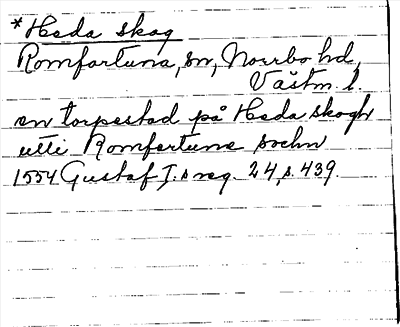 *Heda skog
Romfartuna, sn, Norrbo hd,
Västm. l.
en torpestad på Heda skogh
utti Romfertuna sochn
1554 Gustaf I:s reg. 24, s. 439.